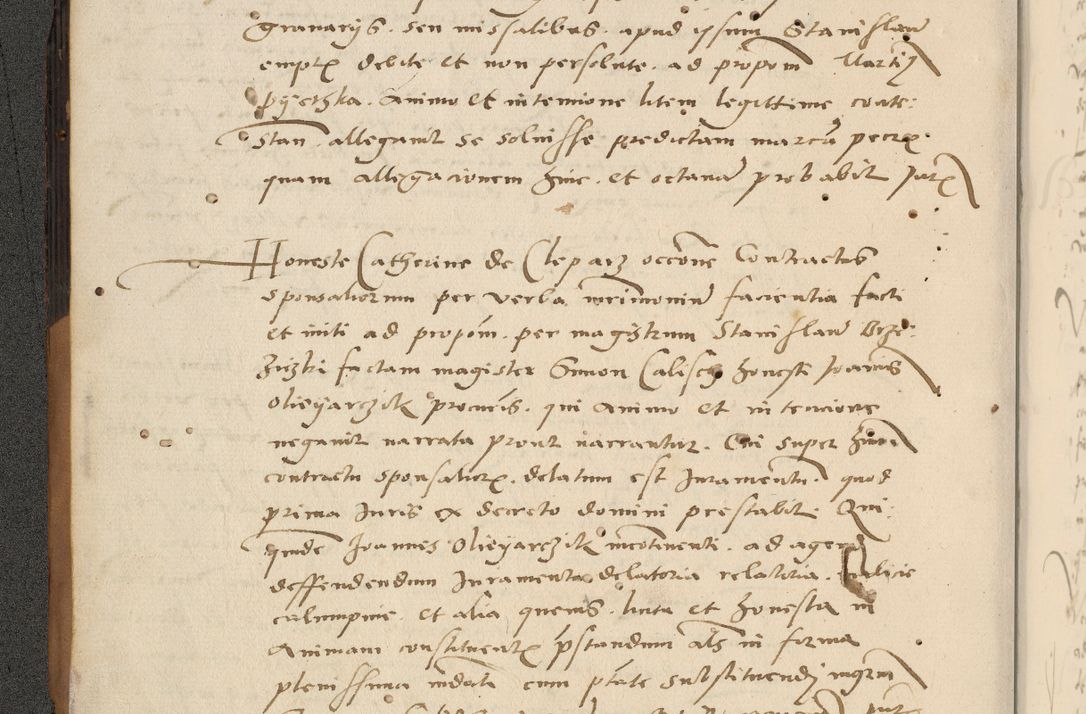 granarijs. seu missalibus. apud ipsum Stanislaum
empt debite et non persolute. ad propom Martij
pyeczka. Animo et intencione litem legittime conte:
Stan. allegavit se soluisse predictam marcam pecux.
quam allegacionem hinc. et octava probabit Jurx
Honeste Catherine de Cleparz occone Contractus
sponsaliorum per verba mrimonium facientia facti
et initi ad propom. per magistrum Stanislaum Brze:
ziczki factam magister Simon Calisch honesti Joannis
Olieyarczik procuris. qui Animo et intencione
negavit narrata prout narrantur. Cui super huius
contractu sponsaliorx. delatum est Juramentum. quod
prima Juris ex decreto domini prestabit. Qui:
quidem Joannes Olieyarczik incontinenti. ad agend
deffendendum Juramenta delatoria relatoria. malicie
calumpnie. et alia quevis. licita et honesta in
Animam constituentx prstandum als in forma
plenissima mdati cum ptate substituendi mgrm